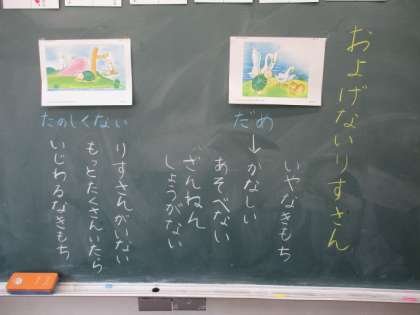 およげないりすさん
だめ
↓
いやなきもち
かなしい
あそべない
ざんねん
しょうがない
たのしくない
りすさんがいない
もっとたくさんいたら
いじわるなきもち